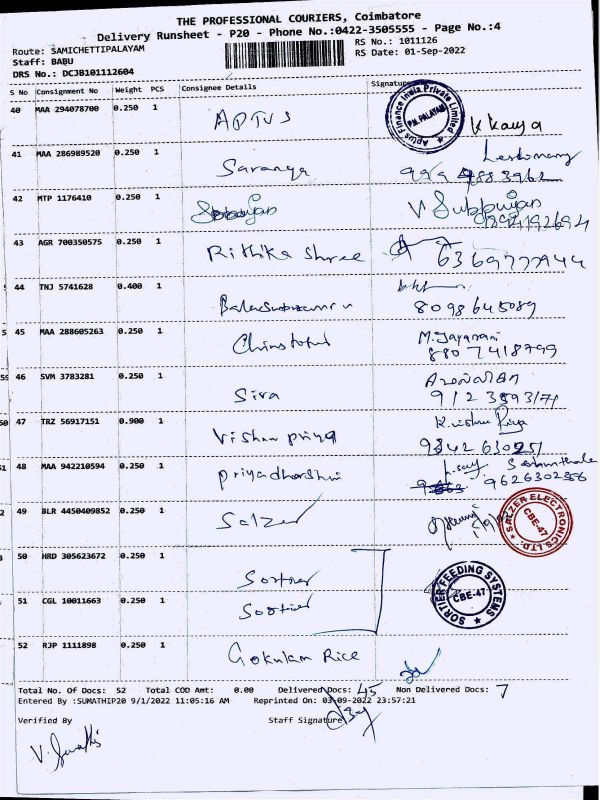 THE PROFESSIONAL COURIERS, Coimbatore
Delivery Runsheet - P20 - Phone No.:0422-3505555 - Page No.:4
Route: SAMICHETTIPALAYAM
RS No.: 1011126
Staff: BABU
RS Date: 01-Sep-2022
DRS No.: DCJB101112604
S No Consignment No Weight PCS Consignee Details Signature
40 MAA 294078700 0.250 1 APTUS
Aptus Finance India Private Limited
P.N. PALAYAM
41 MAA 286989520 0.250 1 Saranya
42 MTP 1176410 0.250 1
V Subbuijan
43 AGR 700350575 0.250 1 Rithika Shree
44 TNJ 5741628 0.400 1
8098645089
45 MAA 288605263 0.250 1
M. Jayarani
8807418799
46 SVM 3783281 0.250 1 Siva
47 TRZ 56917151 0.900 1 Vishnu priya
K. vishnu Priya
48 MAA 942210594 0.250 1 priyadharshini
9626302356
49 BLR 4450409852 0.250 1 Salzer
SALZER ELECTRONICS LTD.
CBE-47
50 HRD 305623672 0.250 1 Sortier
51 CGL 10011663 0.250 1 Sortier
SORTIER FEEDING SYSTEMS
CBE-47
52 RJP 1111898 0.250 1 Gokulam Rice
Total No. Of Docs: 52 Total COD Amt: 0.00 Delivered Docs: 45 Non Delivered Docs: 7
Entered By :SUMATHIP20 9/1/2022 11:05:16 AM Reprinted On: 03-09-2022 23:57:21
Verified By Staff Signature
V. Sumathi